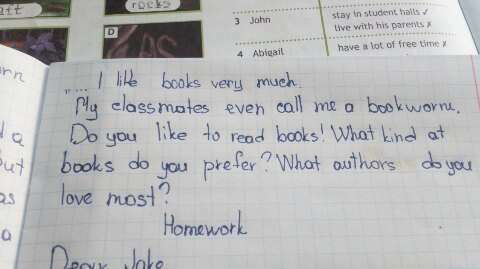 att
rocks
D
3 John
stay in student halls ✓
live with his parents ✗
4 Abigail
have a lot of free time ✗
"... I like books very much.
My classmates even call me a bookworm.
Do you like to read books! What kind at
books do you prefer? What authors do you
love most?
Homework
Dear Jake